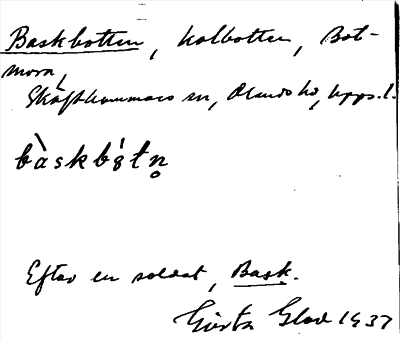 Baskbotten, kolbotten, Bot-
mora,
Skäfthammars sn, Olands hd, Upps. l.
bàskbótn̥
Efter en soldat, Bask.
Gösta Glad 1937